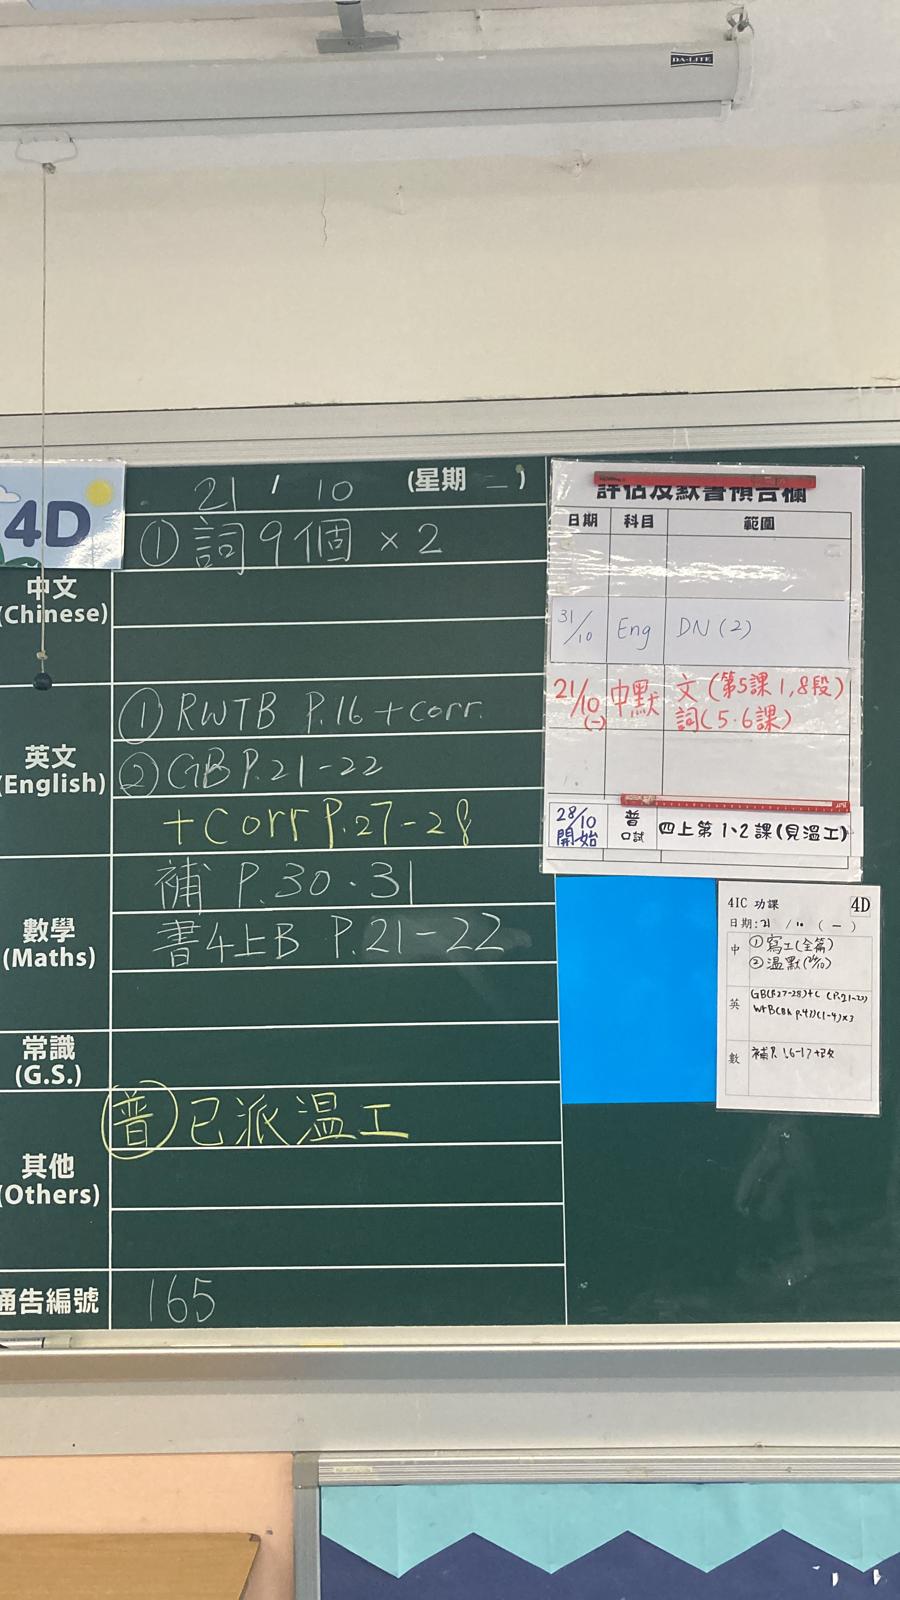 DA-LITE
4D
21 / 10 (星期二)
中文
(Chinese)
① 詞9個 × 2
英文
(English)
① RWTB P.16 + corr.
② GB P.21-22
+ Corr P.27-28
數學
(Maths)
補 P.30.31
書4上B P.21-22
常識
(G.S.)
其他
(Others)
普 已派溫工
通告編號
165
評估及默書預告欄
日期 科目 範圍
31/10 Eng DN (2)
21/10 (一) 中默 文 (第5課 1,8段)
詞 (5.6課)
28/10 開始 普 口試 四上第1、2課(見溫工)
4IC 功課 4D
日期: 21 / 10 (一)
中 ① 寫工(全篇)
② 溫默
英 GB(P.27-28)+C (P.21-22)
數 補 P.16-17+改